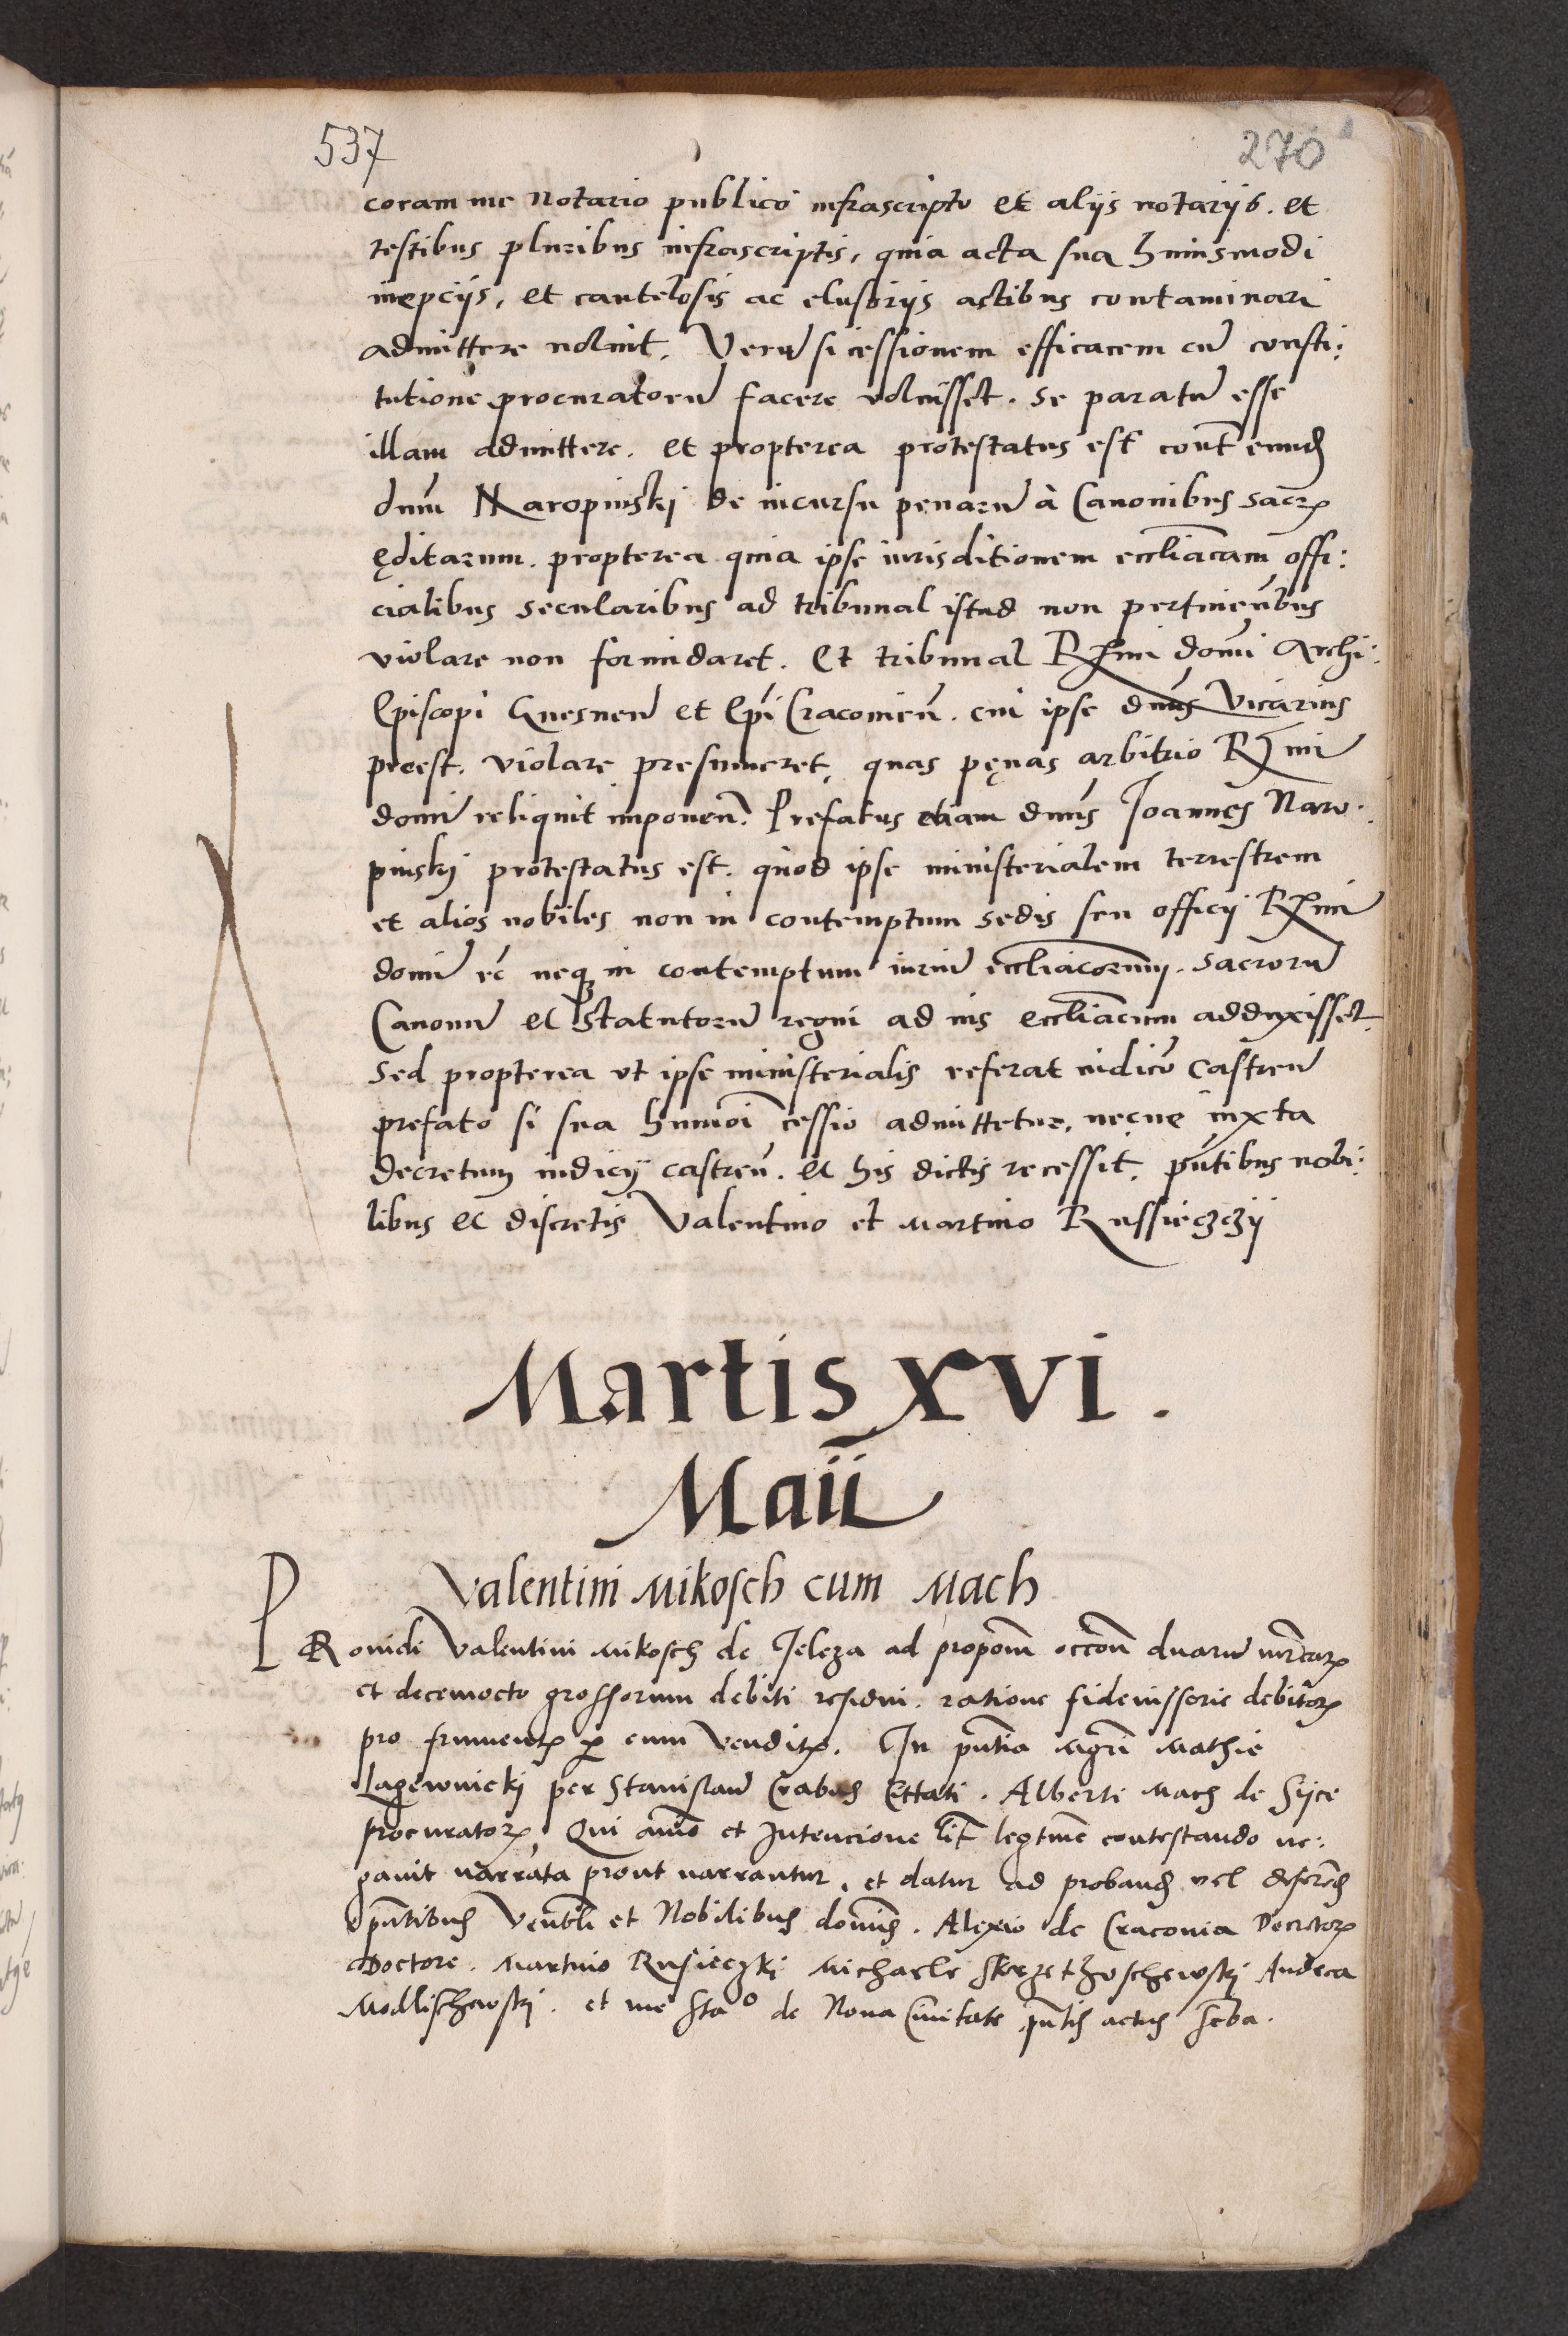 537
270
coram me notario publico infrascripto et alijs notarijs. et
testibus pluribus infrascriptis, quia acta sua huiusmodi
inepcijs, et cautelosis ac elusorijs actibus contaminari
admittere noluit. Verũ si cessionem efficacem cũ consti:
tutione procuratorũ facere voluisset. se paratũ esse
illam admittere. et propterea protestatus est cont̃ eundẽ
dnum Naropinskj de incursu penarũ à Canonibus sacrꝝ
ęditarum. propterea quia ipse iurisditionem eccliãcam offi:
cialibus secularibus ad tribunal istud non pertineñbus
violare non formidaret. Et tribunal Rx̃mi domi Archi:
Episcopi Gnesneñ et Epĩ Cracovieñ. cui ipse dnus Vicarius
preest. violare presumeret, quas pęnas arbitrio Rx̃mi
domi reliquit imponeñ. Prefatus etiam dnus Joannes Naro:
pinskj protestatus est. quod ipse ministerialem terrestrem
et alios nobiles non in contemptum sedis seu officij Rx̃mi
domi ec̃ neqꝫ in contemptum iuriũ eccliãcorum. sacrorũ
Canonũ et statutorũ regni ad ius eccliãcum adduxisset.
Sed propterea vt ipse ministerialis referat iudicio Castreñ
prefato si sua humoi cessio admittetur, necne iuxta
decretum iudicij castreñ. et his dictis recessit. pñtibus nobi:
libus et discretis Valentino et Martino Russieczczij
Martis XVI.
Maii
Valentini Mikosch cum Mach
PRouidi Valentini Mikosch de Jeleza ad propoñm occoñm duarũ mrcarꝝ
et decemocto grossorum debiti residui. ratione fideiussorie debitorꝝ
pro frumentꝝ per eum venditꝝ. In pñtia Mgri Mathie
Lagewnickj per Stanislaũ Crabus Cittati. Alberti Mach de Syce
procuratorꝝ Qui animo et Intencione lit̃ legtime contestando ne:
gauit narrata prout narrantur, et datur ad probanđ vel deferenđ
pñtibus Veñbli et Nobilibus domis. Alexio de Cracouia Decretorꝝ
Doctore. Martino Rusieczkj Michaele Skrzethuschewskj Andrea
Modlischewskj. et me Stao de Noua Ciuitate pñtis actus scba.